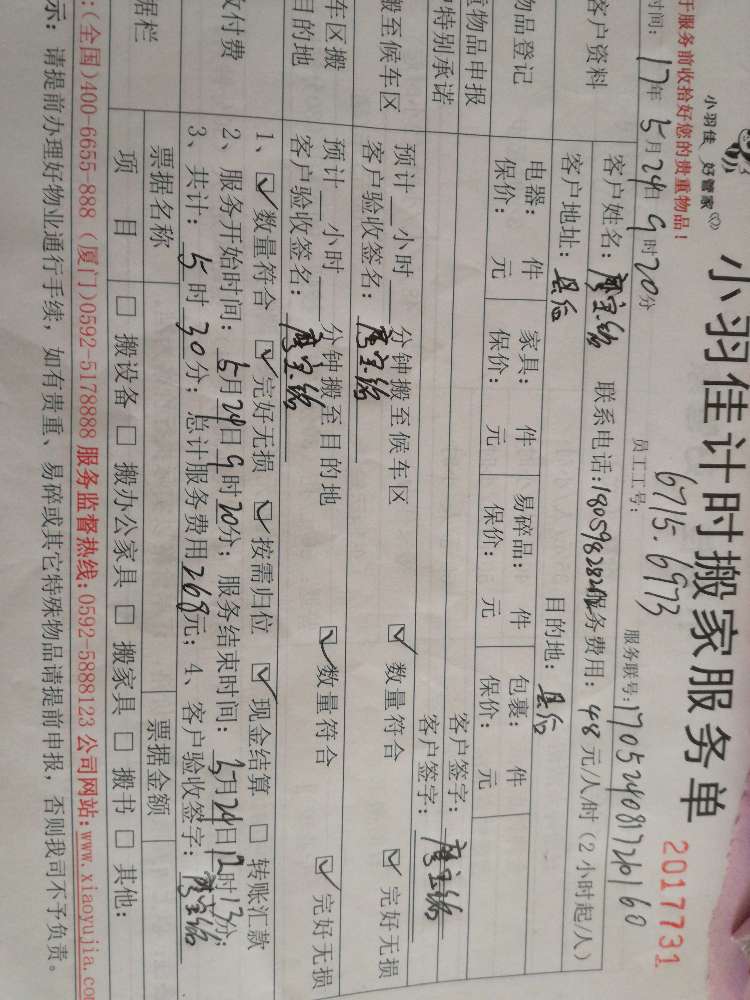 小羽佳 好管家
小羽佳计时搬家服务单
2017731
于服务前收拾好您的贵重物品！
员工工号：6715.6973
服务联号：
时间：17年5月24日9时20分
客户资料
客户姓名： 联系电话： 服务费用：48元/人/时（2小时起/人）
客户地址：县后 目的地：县后
物品登记
电器： 件 家具： 件 易碎品： 件 包裹： 件
保价： 元 保价： 元 保价： 元 保价： 元
物品申报 客户签字：
特别承诺 客户签字：
搬至候车区
预计 小时 分钟搬至候车区 ☑数量符合 ☑完好无损
客户验收签名：
车区搬
目的地
预计 小时 分钟搬至目的地 ☑数量符合 ☑完好无损
客户验收签名：
付费
1、☑数量符合 ☑完好无损 ☑按需归位 ☑现金结算 □转账汇款
2、服务开始时间：5月24日9时20分；服务结束时间：5月24日12时13分；
3、共计：5时30分；总计服务费用268元；4、客户验收签字：
据栏
票据名称 票据金额
项 目 □搬设备 □搬办公家具 □搬家具 □搬书 □其他：
：(全国)400-6655-888（厦门)0592-5178888 服务监督热线：0592-5888123 公司网站：www.xiaoyujia.co
示：请提前办理好物业通行手续，如有贵重、易碎或其它特殊物品请提前申报，否则我司不予负责。